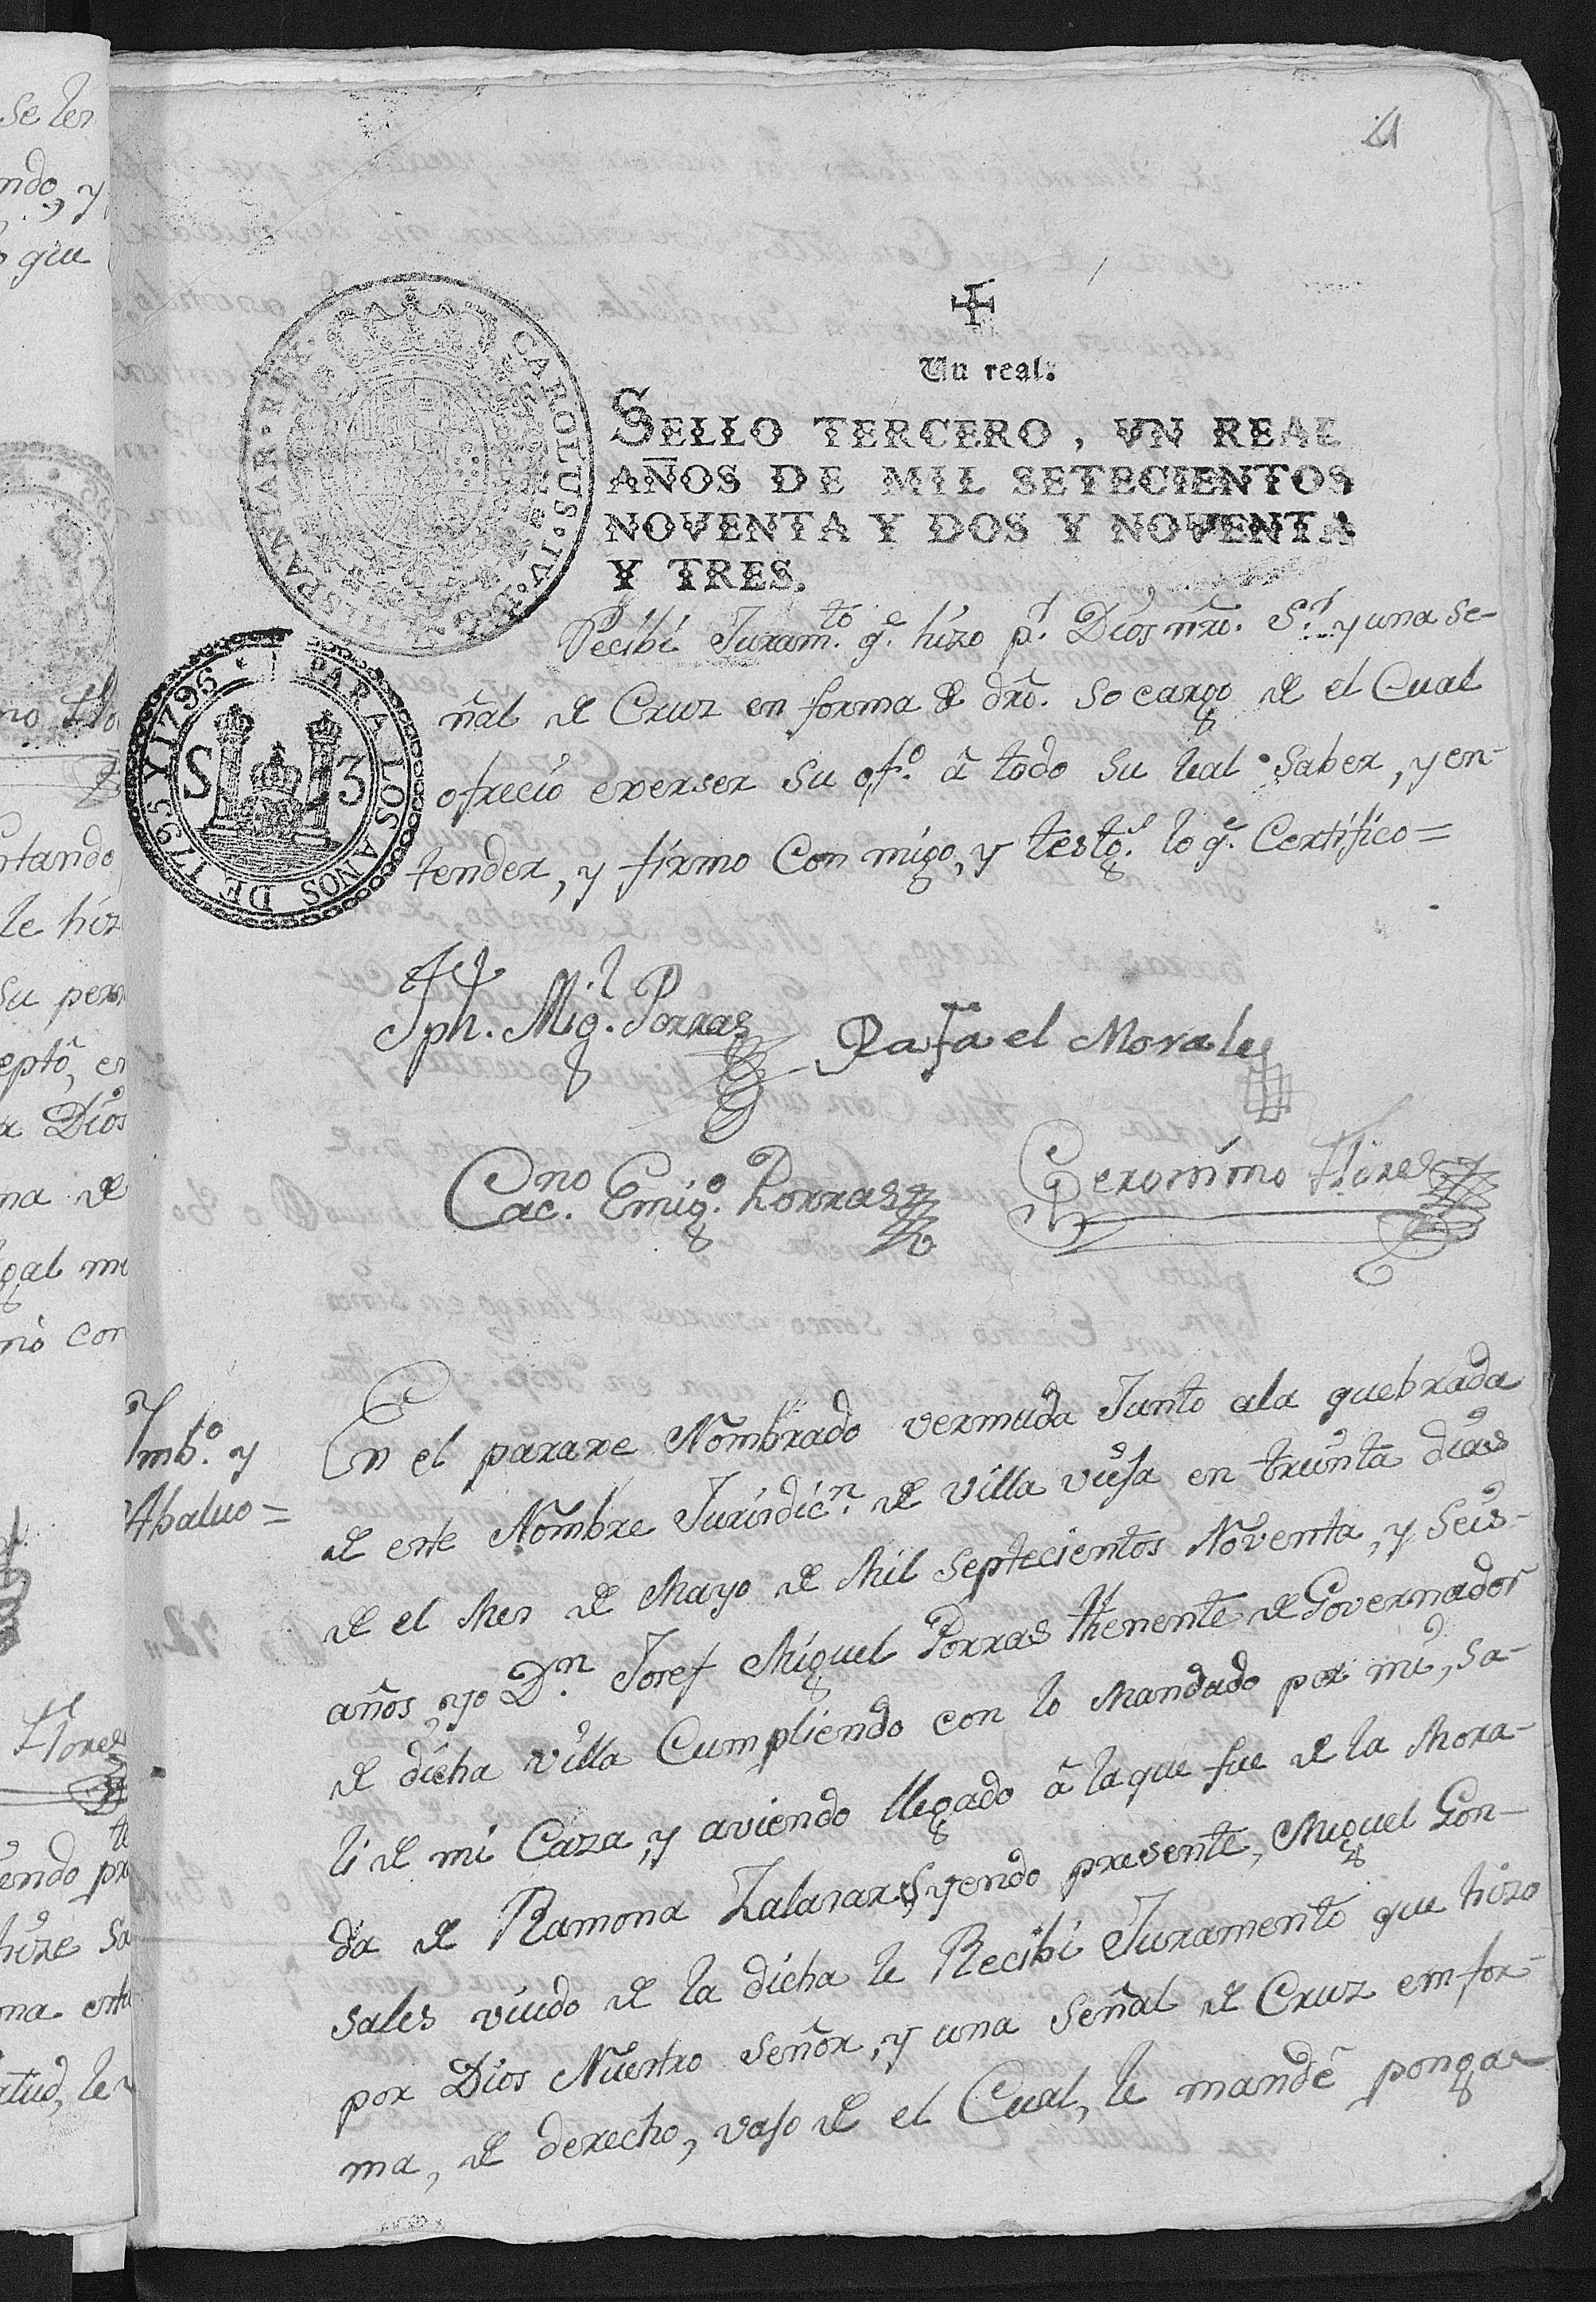 4
Un real.
SELLO TERCERO, VN REAL
AÑOS DE MIL SETECIENTOS
NOVENTA Y DOS Y NOVENTA
Y TRES.
CAROLUS·IV·D·G·HISPANIAR·REX·
PARA LOS AÑOS DE 1795 Y 1796·
S 3
Recibi Juram.to q.e hizo p.r Dios nrõ. S.r y una se-
ñal de Cruz en forma de drõ. so cargo de el Cual
ofrecio exerser su ofo. â todo su leal saber, y en-
tender, y firmo Con migo, y testg.s lo q.e Certifico=
Jph. Mig.l Porras
Rafael Morales
Cac.no Emig.o Porras
Geronimo Flores
Imb.o y
Abaluo=
En el paraxe Nombrado vermuda Junto ala quebrada
de este Nombre Jurisdic.n de Villa viefa en treinta dias
de el Mes de Mayo de Mil Septecientos Noventa, y Seis-
años, yo D.n Josef Miguel Porras thenente de Governador
de dicha Villa Cumpliendo con lo Mandado por mi, Sa-
li de mi Caza, y aviendo llegado â laque fue de la Mora-
da de Ramona Zalasar, Syendo presente, Miguel Gon-
sales viudo de la dicha le Recibi Juramento que hizo
por Dios Nuestro Señor, y una Señal de Cruz emfor-
ma, de derecho, vajo de el Cual, le mandê ponga-
se les
ndo, y
que
rtando
le hiz
Su pers
eptô, en
Dios
na de
gal m
con
Flores
endo pr
hize Sa
ma este